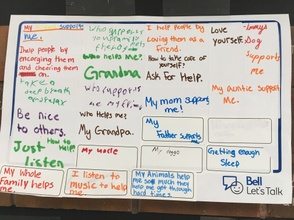 my supports
me.
I help people by
encorging them
and cheering them
on.
who supports
who helps me?
Grandma
who supports
me
I help people by
Loving them as a
friend.
How to take care of
yourself?
Ask For Help.
Love
yourself
Dog
Supports
me
My auntie supports
me.
take
deep breath
and relax
Be nice
to others.
who Helps me!
My Grandpa.
My mom supports
me!
My
Father supports
How to help
Just
listen
My uncle
Getting enough
Sleep
My Whole
Family helps
me
I listen to
music to help
me
My Animals help
me so much they
help me get through
hard times.
Bell
Let's Talk